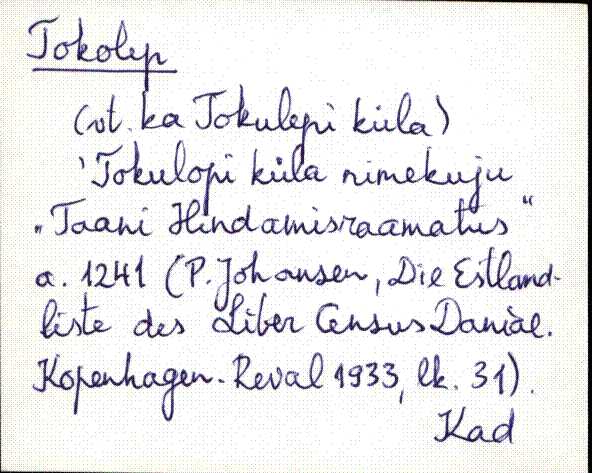 Tokolep
(vt. ka Tokulepi küla)
'Tokulopi küla nimekuju
„Taani Hindamisraamatus“
a. 1241 (P. Johansen, Die Estland-
liste des Liber Census Daniae.
Kopenhagen-Reval 1933, lk. 31).
Kad